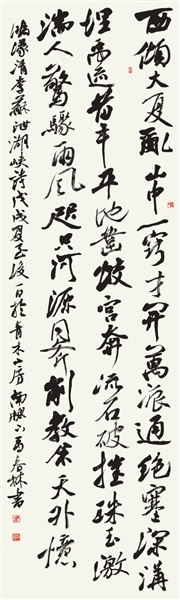 西傾大夏亂山中一竅才開萬派通絕塞深溝
埋禹迹當年平地鑿蛟宮奔流石破摧珠玉激
湍人驚驟雨風咫尺河源同斧削教余天外憶
鴻濛清李蘇泄湖峽詩戊戌夏至後一日於青木山房南牖下馬春林書